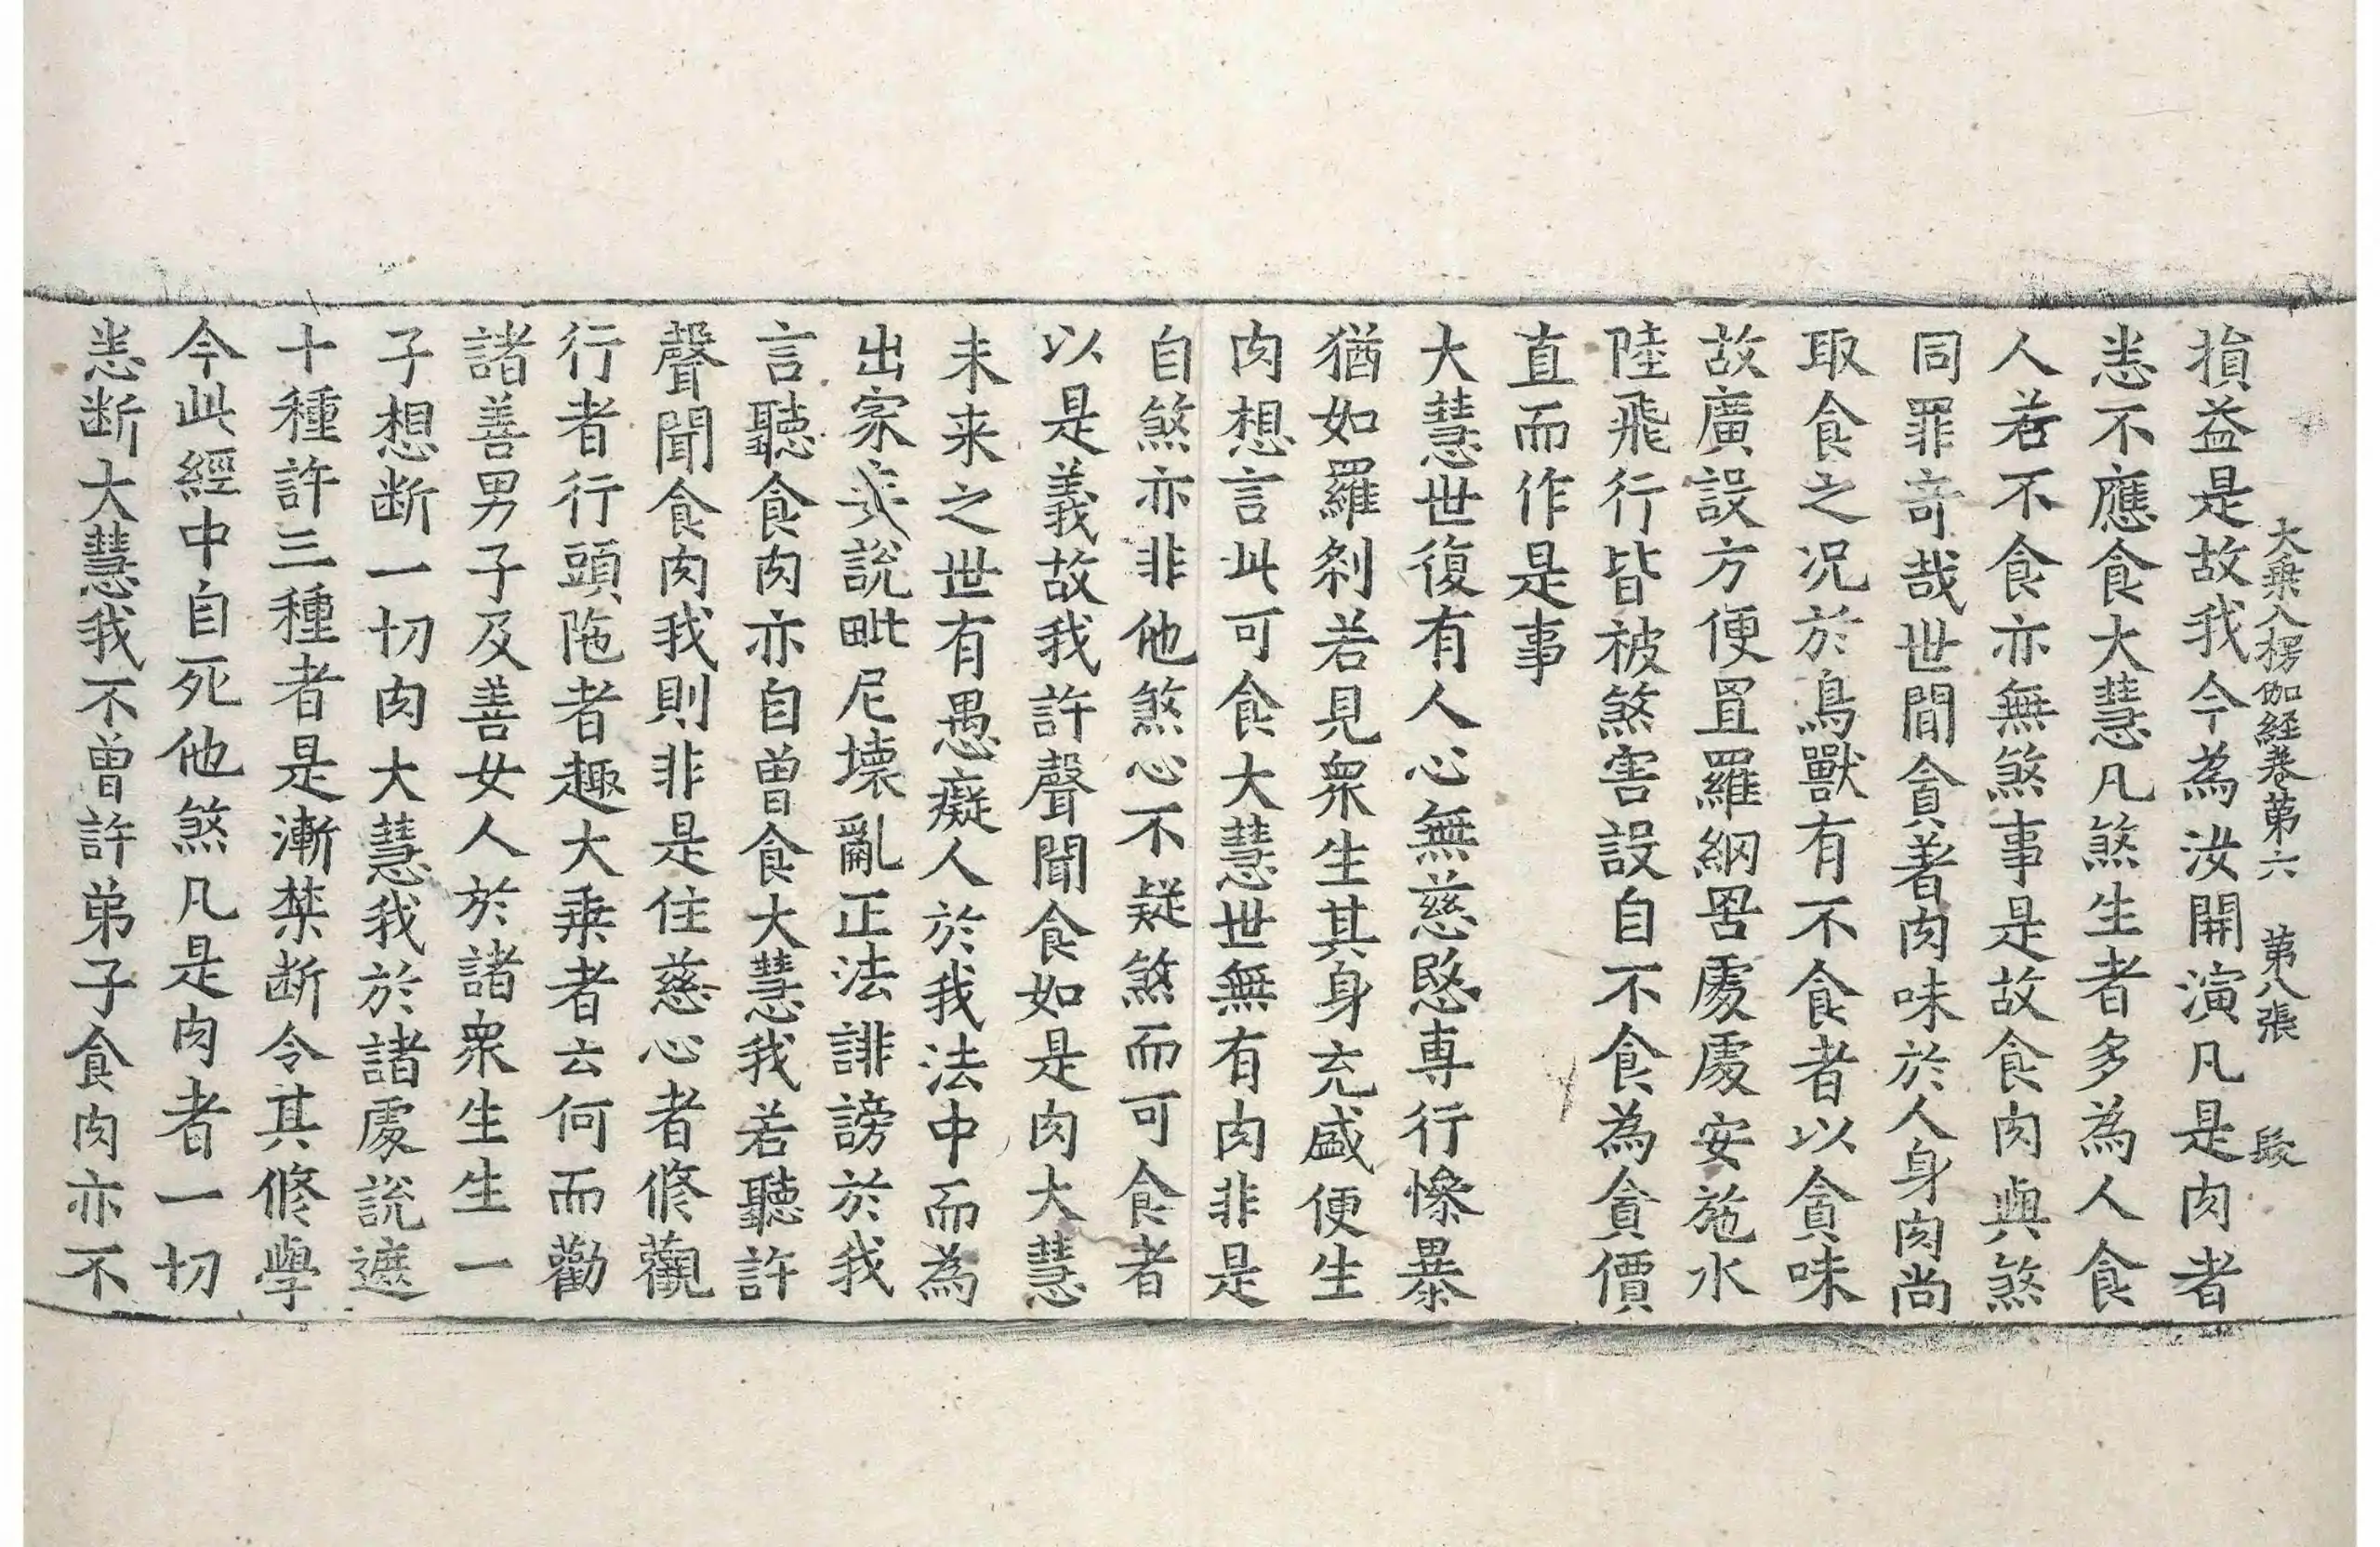 大乗入楞伽経巻第六 第八張 㲀
損益是故我今為汝開演凡是肉者
悉不應食大慧凡煞生者多為人食
人若不食亦無煞事是故食肉與煞
同罪竒哉世間貪著肉味於人身肉尚
取食之况於鳥獸有不食者以貪味
故廣設方便罝羅網罟處處安施水
陸飛行皆被煞害設自不食為貪價
直而作是事
大慧世復有人心無慈愍専行慘暴
猶如羅刹若見衆生其身充盛便生
肉想言此可食大慧世無有肉非是
自煞亦非他煞心不疑煞而可食者
以是義故我許聲聞食如是肉大慧
未来之世有愚癡人於我法中而為
出家妄說毗尼壊亂正法誹謗於我
言聽食肉亦自曾食大慧我若聽許
聲聞食肉我則非是住慈心者修觀
行者行頭陁者趣大乗者云何而勸
諸善男子及善女人於諸衆生生一
子想断一切肉大慧我於諸處說遮
十種許三種者是漸禁断令其修學
今此經中自死他煞凡是肉者一切
悉断大慧我不曾許弟子食肉亦不